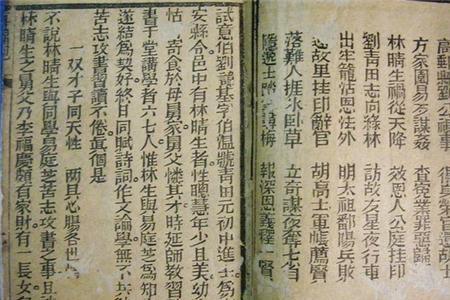 方家園易石謀姦
林晴生禍從天降 救恩人公庭挂印
劉青田志向綠林 訪故友星夜行車
出牢籠沾恩法外 明太祖鄱陽兵敗
故里挂印辭官 胡高士軍帳薦賢
落難人捱水卧草 立奇謀夜奪七省
隱逸士 梅 報深恩義釋一賢
試意伯劉諱基字伯溫號青田元初中進士為
安縣令邑中有林晴生者性聰慧年少且美幼
怙 寄食於母舅家舅父憐其才時延師教習
書于堂講學者六七人惟林生與易庭芝為知
遂結為契好終日同賦詩詞作文論學無不共
苦志攻書習讀不倦真個是
一双才子同天性 兩旦心腸各世
不說林晴生與同學易庭芝苦志攻書之事且
林晴生之舅父乃李福慶頗有家財有一長女